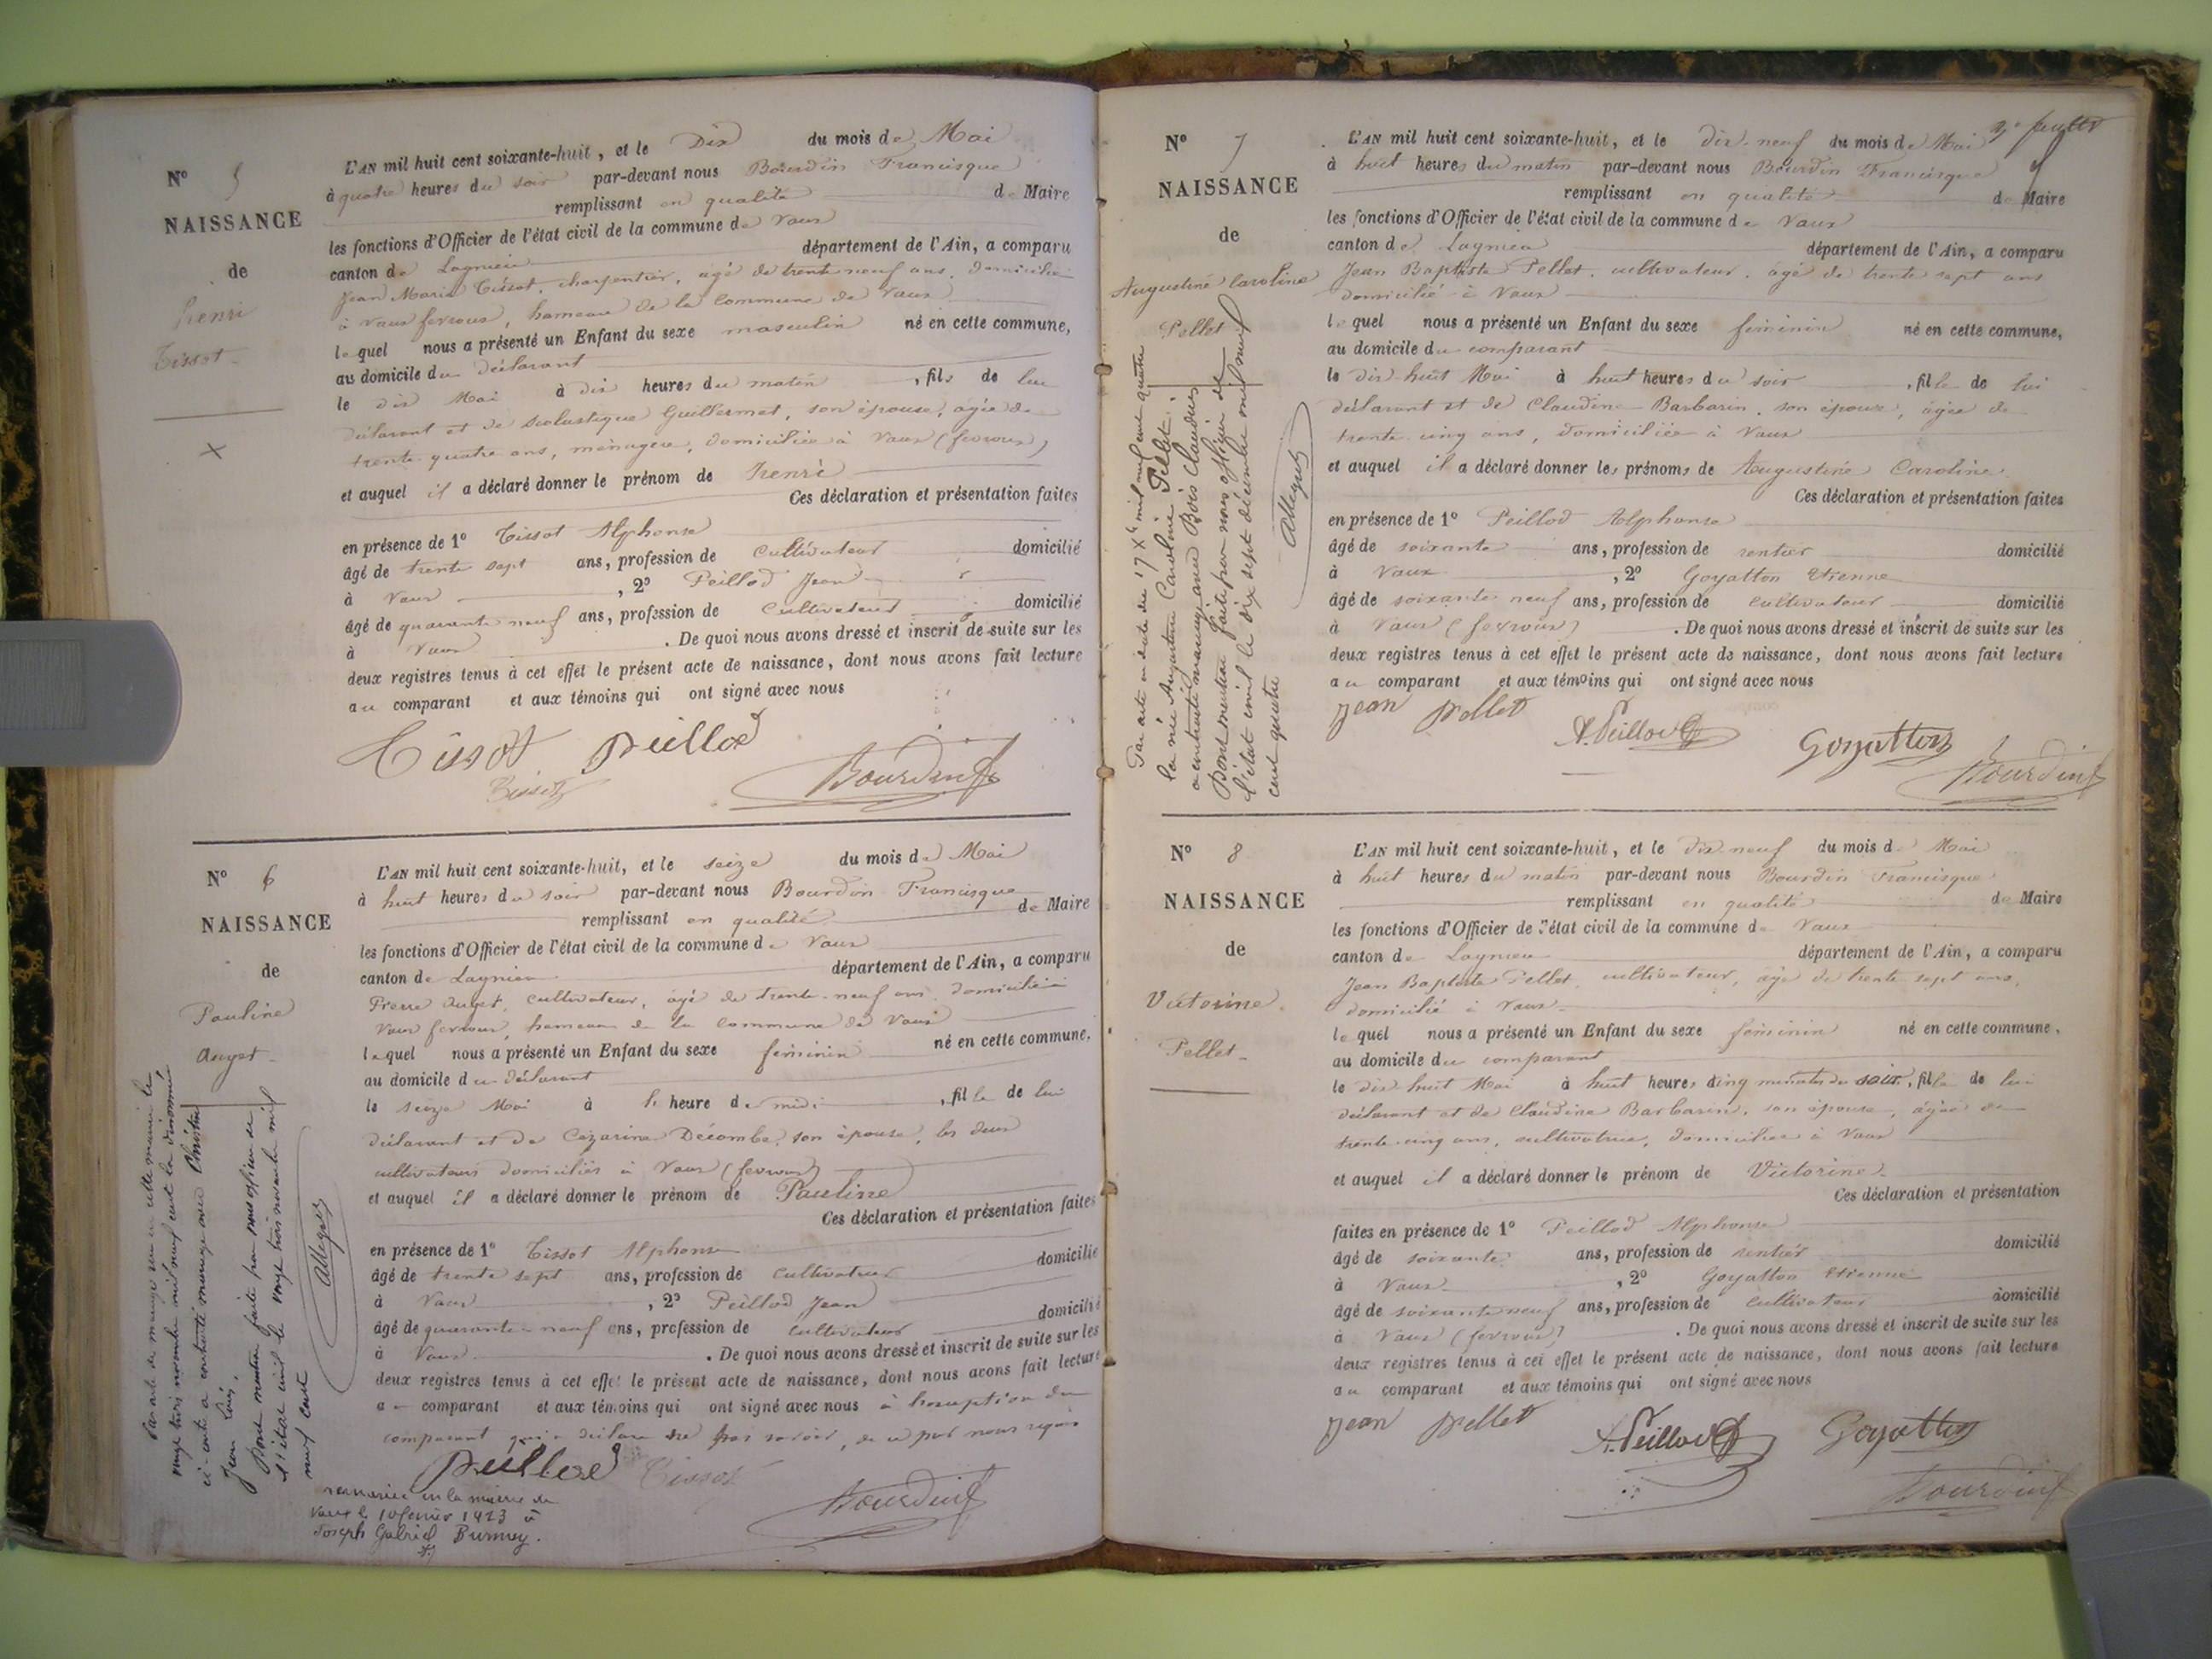 N° 5
NAISSANCE
de
Henri
Tissot
L'AN mil huit cent soixante-huit, et le Dix du mois de Mai
à quatre heures du soir par-devant nous Bourdin Francisque
remplissant en qualité de Maire
les fonctions d'Officier de l'état civil de la commune de Vaux
canton de Lagnieu département de l'Ain, a comparu
Jean Marie Tissot, charpentier, âgé de trente neuf ans, domicilié
à Vaux fevroux, hameau de la Commune de Vaux
lequel nous a présenté un Enfant du sexe masculin né en cette commune,
au domicile du déclarant
le dix Mai à dix heures du matin, fils de lui
déclarant et de Scolastique Guillermet, son épouse, âgée de
trente quatre ans, ménagère, domiciliée à Vaux (fevroux)
et auquel il a déclaré donner le prénom de Henri
Ces déclaration et présentation faites
en présence de 1° Tissot Alphonse
âgé de trente sept ans, profession de Cultivateur domicilié
à Vaux, 2° Peillod Jean
âgé de quarante neuf ans, profession de Cultivateur domicilié
à Vaux. De quoi nous avons dressé et inscrit de suite sur les
deux registres tenus à cet effet le présent acte de naissance, dont nous avons fait lecture
au comparant et aux témoins qui ont signé avec nous
Tissot peillod
Tissot Bourdin
N° 6
NAISSANCE
de
Pauline
Auget
L'AN mil huit cent soixante-huit, et le seize du mois de Mai
à huit heures du soir par-devant nous Bourdin Francisque
remplissant en qualité de Maire
les fonctions d'Officier de l'état civil de la commune de Vaux
canton de Lagnieu département de l'Ain, a comparu
Pierre Auget, cultivateur, âgé de trente-neuf ans, domicilié à
Vaux fevroux, hameau de la Commune de Vaux
lequel nous a présenté un Enfant du sexe féminin né en cette commune,
au domicile du déclarant
le seize Mai à heure de midi, fille de lui
déclarant et de Cézarine Décombe, son épouse, les deux
cultivateurs domiciliés à Vaux (fevroux)
et auquel il a déclaré donner le prénom de Pauline
Ces déclaration et présentation faites
en présence de 1° Tissot Alphonse
âgé de trente sept ans, profession de Cultivateur domicilié
à Vaux, 2° Peillod Jean
âgé de quarante neuf ans, profession de cultivateur domicilié
à Vaux. De quoi nous avons dressé et inscrit de suite sur les
deux registres tenus à cet effet le présent acte de naissance, dont nous avons fait lecture
au comparant et aux témoins qui ont signé avec nous à l'exception du
comparant qui a déclaré ne pas savoir, de ce par nous requis
peillod Tissot
Bourdin
Par acte de mariage reçu en cette mairie le
onze trois novembre mil neuf cent la dénommée
ci-contre a contracté mariage avec Christin
Jean Louis.
Dont mention faite par nous officier de
l'état civil le onze trois novembre mil
neuf cent
Allegret
remariée en la mairie de
Vaux le 10 février 1923 à
Joseph Gabriel
N° 7
NAISSANCE
de
Augustine Caroline
Pellet
L'AN mil huit cent soixante-huit, et le dix-neuf du mois de Mai
à huit heures du matin par-devant nous Bourdin Francisque
remplissant en qualité de Maire
les fonctions d'Officier de l'état civil de la commune de Vaux
canton de Lagnieu département de l'Ain, a comparu
Jean Baptiste Pellet, cultivateur, âgé de trente sept ans
domicilié à Vaux
lequel nous a présenté un Enfant du sexe féminin né en cette commune,
au domicile du comparant
le dix-huit Mai à huit heures du soir, fille de lui
déclarant et de Claudine Barbarin, son épouse, âgée de
trente-cinq ans, domiciliée à Vaux
et auquel il a déclaré donner les prénoms de Augustine Caroline
Ces déclaration et présentation faites
en présence de 1° Peillod Alphonse
âgé de soixante ans, profession de rentier domicilié
à Vaux, 2° Goyatton Etienne
âgé de soixante neuf ans, profession de cultivateur domicilié
à Vaux (fevroux). De quoi nous avons dressé et inscrit de suite sur les
deux registres tenus à cet effet le présent acte de naissance, dont nous avons fait lecture
au comparant et aux témoins qui ont signé avec nous
jean pellet
A. Peillod Goyatton
Bourdin
Par acte en date du 17 Xbre mil neuf cent quatre
la née Augustine Caroline Pellet
a contracté mariage avec Bois Claudius
Dont mention faite par nous officier de
l'état civil le dix sept décembre mil neuf
cent quatre
Allegret
N° 8
NAISSANCE
de
Victorine
Pellet
L'AN mil huit cent soixante-huit, et le dix-neuf du mois de Mai
à huit heures du matin par-devant nous Bourdin Francisque
remplissant en qualité de Maire
les fonctions d'Officier de l'état civil de la commune de Vaux
canton de Lagnieu département de l'Ain, a comparu
Jean Baptiste Pellet, cultivateur, âgé de trente sept ans,
domicilié à Vaux
lequel nous a présenté un Enfant du sexe féminin né en cette commune,
au domicile du comparant
le dix huit Mai à huit heures cinq minutes du soir, fille de lui
déclarant et de Claudine Barbarin, son épouse, âgée de
trente-cinq ans, cultivatrice, domiciliée à Vaux
et auquel il a déclaré donner le prénom de Victorine
Ces déclaration et présentation
faites en présence de 1° Peillod Alphonse
âgé de soixante ans, profession de rentier domicilié
à Vaux, 2° Goyatton Etienne
âgé de soixante neuf ans, profession de cultivateur domicilié
à Vaux (fevroux). De quoi nous avons dressé et inscrit de suite sur les
deux registres tenus à cet effet le présent acte de naissance, dont nous avons fait lecture
au comparant et aux témoins qui ont signé avec nous
jean pellet
A. Peillod Goyatton
Bourdin